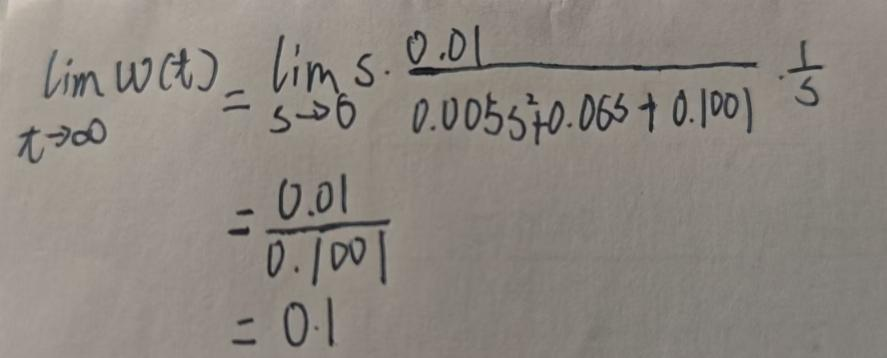 lim t→∞ w(t) = lim s→0 s · 0.01 / (0.005s²+0.06s+0.1001) · 1/s
= 0.01 / 0.1001
= 0.1